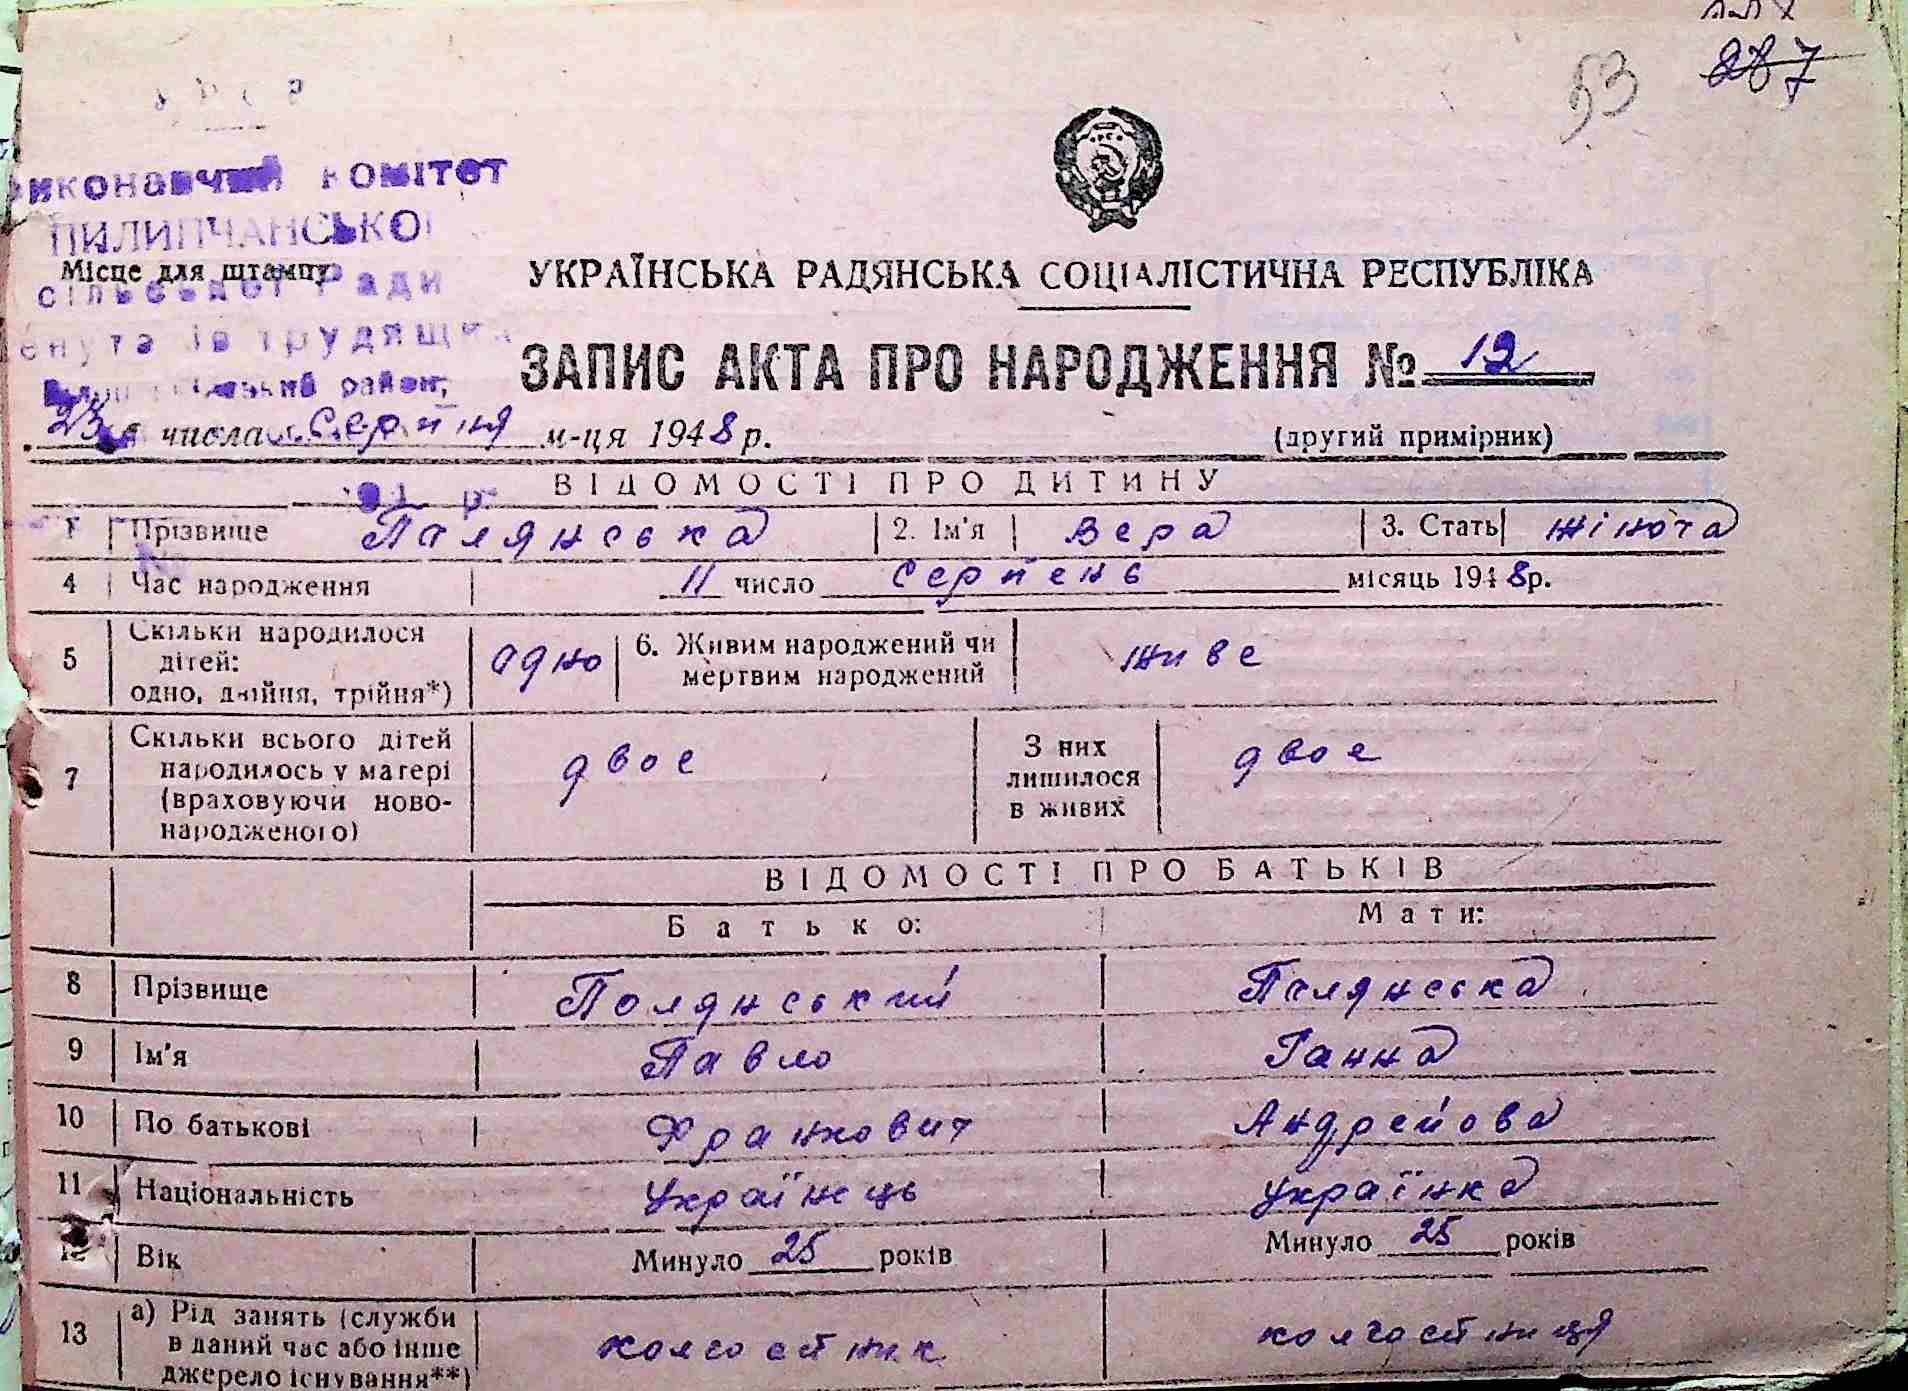 53 287
виконавчий комітет
ПИЛИПЧАНСЬКОЇ
Місце для штампу
сільської Ради
трудящих
район,
УКРАЇНСЬКА РАДЯНСЬКА СОЦІАЛІСТИЧНА РЕСПУБЛІКА
ЗАПИС АКТА ПРО НАРОДЖЕННЯ № 12
23 числа Серпня м-ця 1948 р.
(другий примірник)
ВІДОМОСТІ ПРО ДИТИНУ
1 Прізвище Палянська 2. Ім'я Вера 3. Стать жіноча
4 Час народження 11 число Серпень місяць 1948р.
5 Скільки народилося дітей: одно, двійня, трійня*) одно 6. Живим народжений чи мертвим народжений живе
7 Скільки всього дітей народилось у матері (враховуючи ново-народженого) двое З них лишилося в живих двое
ВІДОМОСТІ ПРО БАТЬКІВ
Батько: Мати:
8 Прізвище Полянський Палянська
9 Ім'я Павло Ганна
10 По батькові Франкович Андрейова
11 Національність Українець українка
12 Вік Минуло 25 років Минуло 25 років
13 а) Рід занять (служби в даний час або інше джерело існування**) колгостник колгостниця